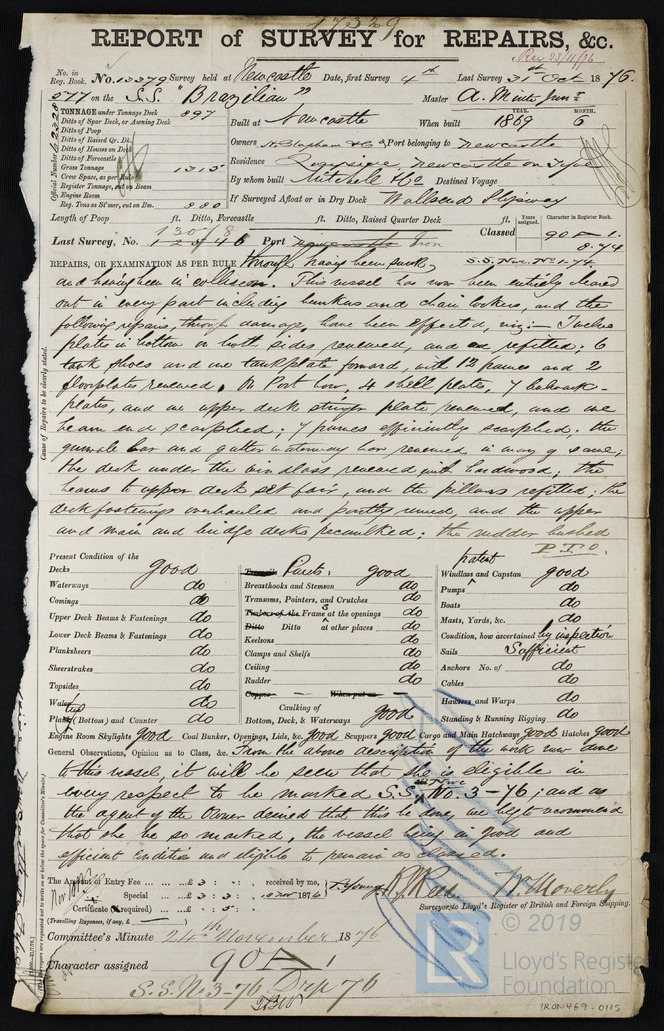 17329
REPORT of SURVEY for REPAIRS, &c.
Rec 23/11/76
No. in Reg. Book. No. 13379 Survey held at Newcastle Date, first Survey 4th Last Survey 31st Oct 1876.
277 on the S.S. "Brazilian" Master A. Minto Junr
TONNAGE under Tonnage Deck 897
Ditto of Spar Deck, or Awning Deck
Ditto of Poop
Ditto of Raised Qr. Dk.
Ditto of Houses on Deck
Ditto of Forecastle
Gross Tonnage 1315
Crew Space, as per Rule
Register Tonnage, cut on Beam
Engine Room
Reg. Tons as St'mer, cut on Bm. 880
Official Number
Built at Newcastle When built YEAR. 1869 MONTH. 6
Owners N. Clapham & Co Port belonging to Newcastle
Residence Quayside, Newcastle on Tyne
By whom built Mitchell & Co Destined Voyage
If Surveyed Afloat or in Dry Dock Wallsend Slipway
Length of Poop ft. Ditto, Forecastle ft. Ditto, Raised Quarter Deck ft. Years assigned. Character in Register Book.
13078
Last Survey, No. Port Iron Classed 90 A 1.
8.74
S.S. Nwc. No 1-74
REPAIRS, OR EXAMINATION AS PER RULE through having been sunk,
and having been in collision. This vessel has now been entirely cleared
out in every part including bunkers and chain lockers, and the
following repairs, through damage, have been effected, viz:- Twelve
plates in bottom on both sides renewed, and one refitted; 6
tank shoes and one tankplate forward, with 12 frames and 2
floorplates renewed. On Port bow, 4 shell plates, 7 bulwark-
plates, and one upper deck stringer plate renewed, and one
beam end scarphed; 7 frames efficiently scarphed; the
gunwale bar and gutter waterway bar renewed in way of same;
the deck under the windlass renewed with hardwood; the
beams to upper deck set fair, and the pillars refitted; the
deck fastenings overhauled and partly renewed, and the upper
and main and bridge decks recaulked; the rudder bushed
P.T.O.
Cause of Repairs to be clearly stated.
Present Condition of the
Decks good
Waterways do
Comings do
Upper Deck Beams & Fastenings do
Lower Deck Beams & Fastenings do
Planksheers do
Sheerstrakes do
Topsides do
Wales do
Plating (Bottom) and Counter do
Treenails Rivets, good
Breasthooks and Stemson do
Transoms, Pointers, and Crutches do
Timbers of the Frames at the openings do
Ditto Ditto at other places do
Keelsons do
Clamps and Shelfs do
Ceiling do
Rudder do
Copper When put on
Caulking of Bottom, Deck, & Waterways good
patent
Windlass and Capstan good
Pumps do
Boats do
Masts, Yards, &c. do
Condition, how ascertained by inspection
Sails Sufficient
Anchors No. of do
Cables do
Hawsers and Warps do
Standing & Running Rigging do
Engine Room Skylights good Coal Bunker, Openings, Lids, &c. good Scuppers good Cargo and Main Hatchways good Hatches good
General Observations, Opinion as to Class, &c. From the above description of the work now done
to this vessel, it will be seen that she is eligible in
every respect to be marked S.S. Nwc No. 3-76; and as
the agent of the Owner desired that this be done, we beg to recommend
that she be so marked, the vessel being in good and
efficient condition and eligible to remain as classed.
The Amount of Entry Fee £ : : received by me,
Special £ 3 : 3 : 10 Nov 1876 T. Young
Certificate (required) £ : 5 :
(Travelling Expenses, if any, £ )
R. J. Reed. W. Moverly
Surveyors to Lloyd's Register of British and Foreign Shipping.
Committee's Minute 24th November 1876
Character assigned 90 A 1
S.S. No 3-76 Drp 76
© 2019
Lloyd's Register
Foundation
IRON469-0115